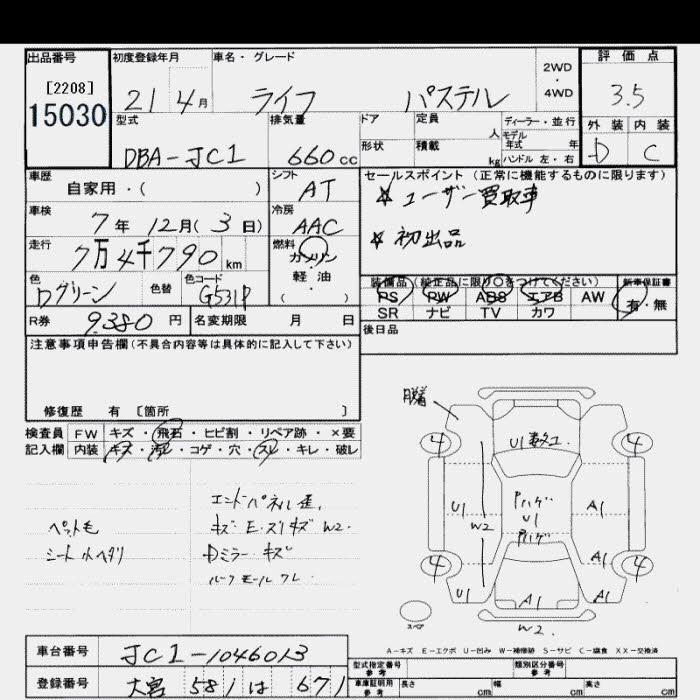 出品番号
[2208]
15030
初度登録年月
21 4月
車名・グレード
ライフ パステル
2WD
・
4WD
評価点
3.5
外装 内装
D C
型式
DBA-JC1
排気量
660cc
ドア
形状
定員
人
積載
kg
ディーラー・並行
モデル
年式 年
ハンドル 左・右
車歴
自家用・( )
シフト
AT
セールスポイント(正常に機能するものに限ります)
☆ユーザー買取車
☆初出品
車検
7年 12月(3日)
冷房
AAC
走行
7万4千790km
燃料
ガソリン
・
軽・油
・
( )
色
Dグリーン
色替
色コード
G531P
装備品(純正品に限り○をつけてください)
PS PW ABS エアB AW
SR ナビ TV カワ
新車保証書
有・無
R券 9,380円
名変期限 月 日
後日品
注意事項申告欄(不具合内容等は具体的に記入して下さい)
修復歴 有〔箇所 〕
検査員
記入欄
FW キズ・飛石・ヒビ割・リペア跡・×要
内装 キズ・汚レ・コゲ・穴・スレ・キレ・破レ
ペット毛
シート
エンドパネル歪
キズ W2.
Dミラーキズ
ルーフモールワレ
脱着
4 4
U1
U1
W2
U1
A1
4 4
A1
U1
A1
A1
W2.
スペア
A-キズ E-エクボ U-凹み W-補修跡 S-サビ C-腐食 XX-交換済
車台番号
JC1-1046013
登録番号
大宮 581 は 671
型式指定番号
参考
類別区分番号
参考
車庫証明用
参考
長さ cm
幅 cm
高さ cm